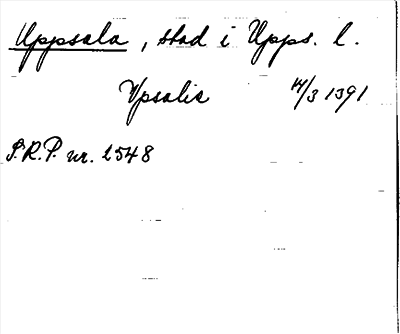 Uppsala, stad i Upps. l.
Vpsalie 14/3 1391
S.R.P. nr. 2548